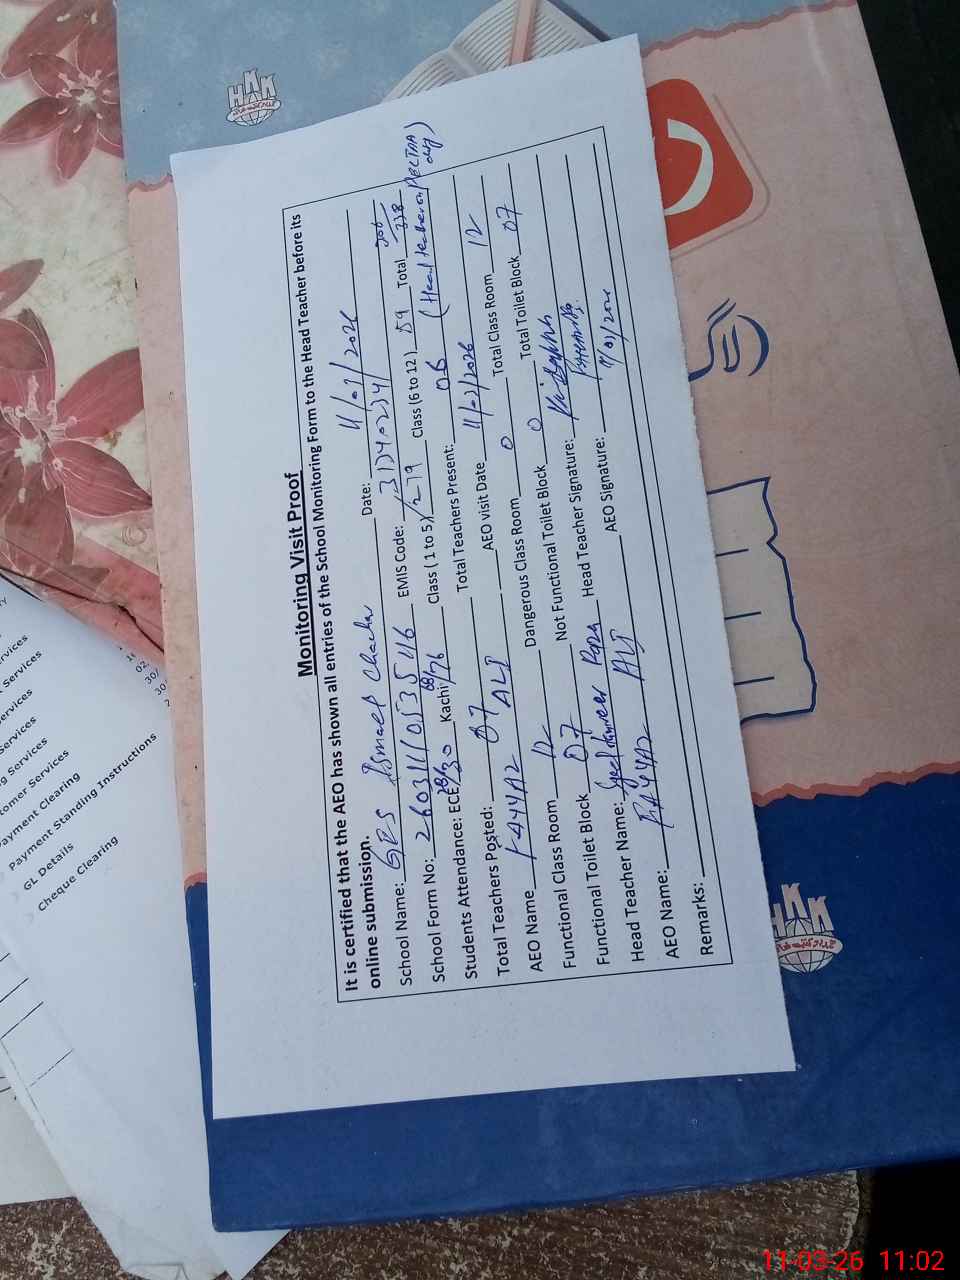 Monitoring Visit Proof
It is certified that the AEO has shown all entries of the School Monitoring Form to the Head Teacher before its
online submission.
School Name: GPS Ismael Chacha Date: 11/03/2026
School Form No: EMIS Code: 31240234
Students Attendance: ECE /30 Kachi /76 Class (1 to 5) /279 Class (6 to 12) 59 Total 306/338
Total Teachers Posted: 07 Total Teachers Present: 06 (Head teacher on PECTAA duty)
AEO Name FAYYAZ ALI AEO visit Date 11/03/2026
Functional Class Room 12 Dangerous Class Room 0 Total Class Room 12
Functional Toilet Block 07 Not Functional Toilet Block 0 Total Toilet Block 07
Head Teacher Name: Syed Raza Head Teacher Signature:
AEO Name: FAYYAZ ALI AEO Signature:
Remarks:
HKK
HKK
Services
Services
Services
Services
Services
Customer Services
Payment Clearing
Payment Standing Instructions
GL Details
Cheque Clearing
02
30/
30
11-03-26 11:02